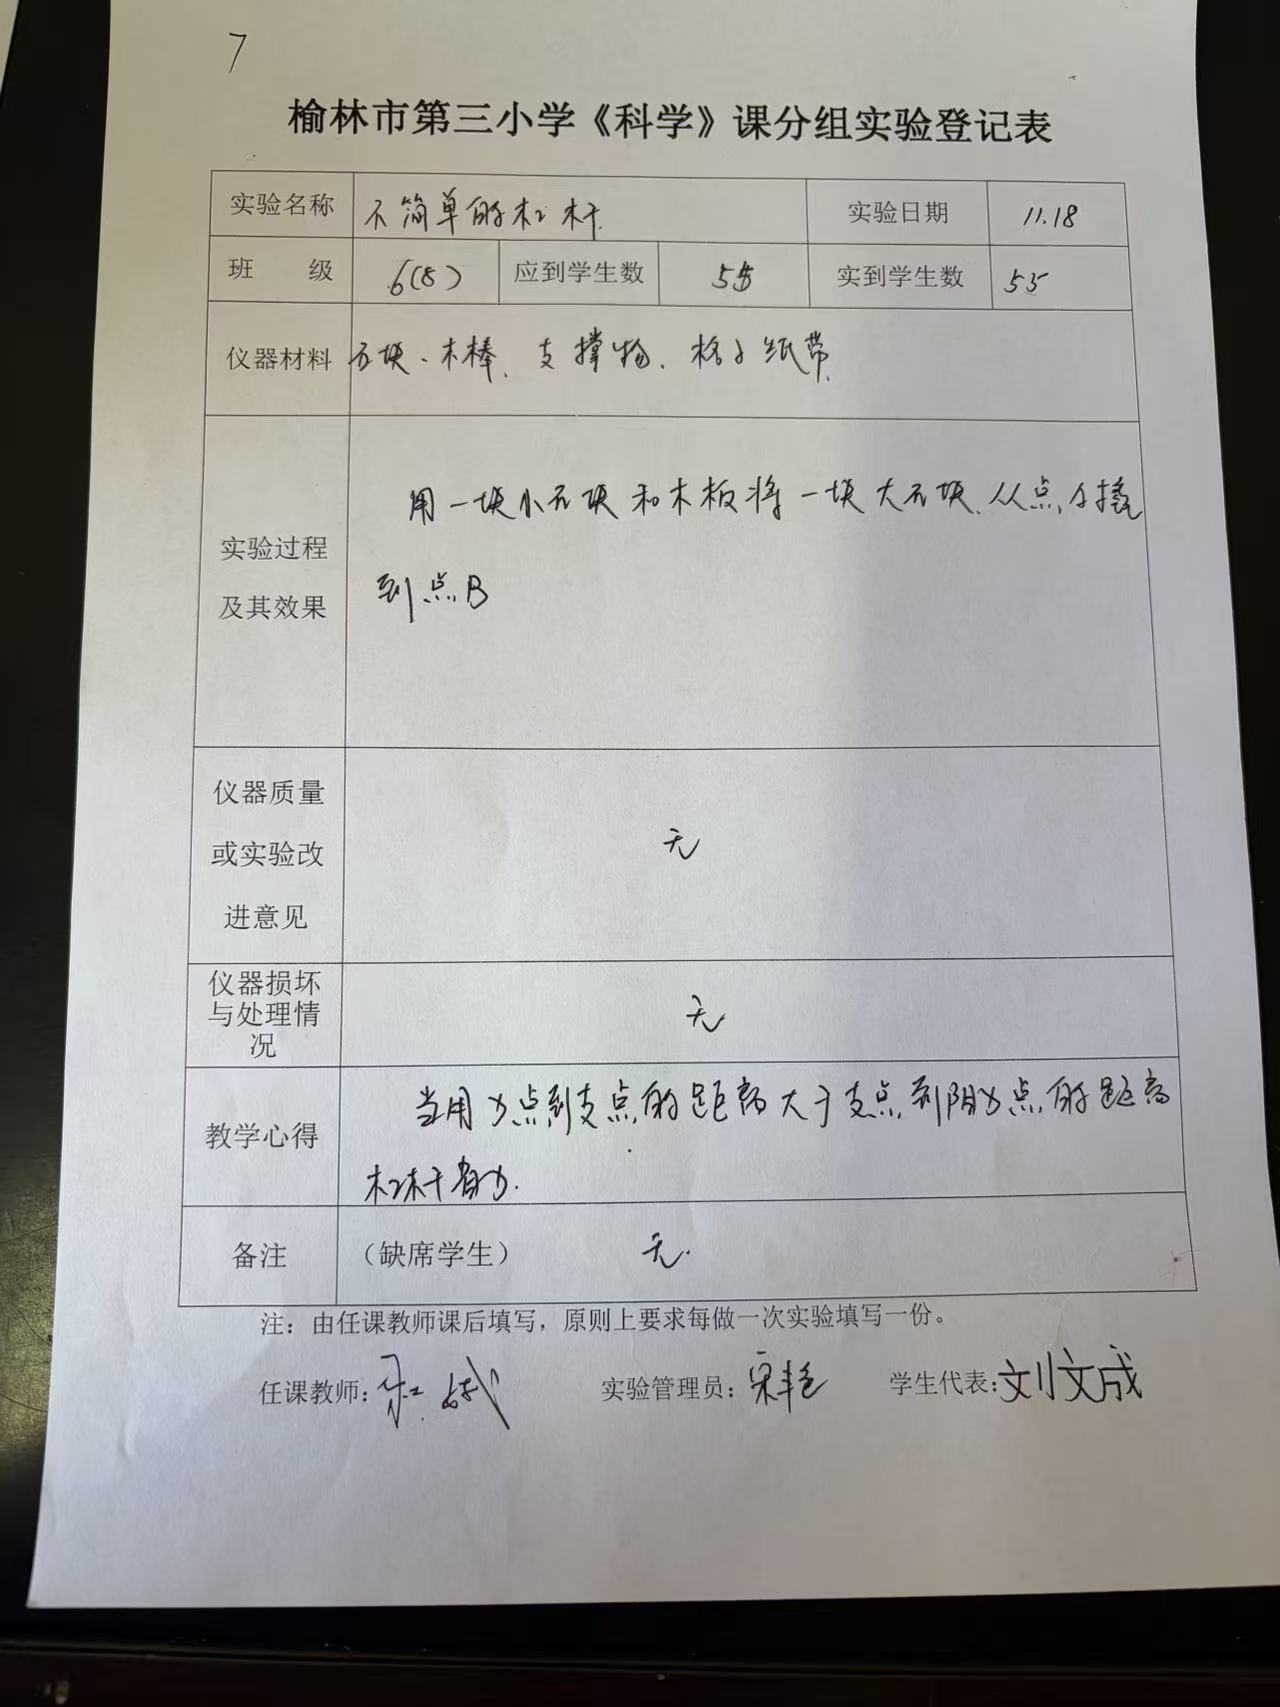 7
榆林市第三小学《科学》课分组实验登记表
实验名称 不简单的杠杆 实验日期 11.18
班 级 6(8) 应到学生数 55 实到学生数 55
仪器材料 石块、木棒、支撑物、格子纸带
实验过程
及其效果
用一块小石块和木板将一块大石块从点A撬
到点B
仪器质量
或实验改
进意见
无
仪器损坏
与处理情
况
无
教学心得
当用力点到支点的距离大于支点到阻力点的距离
杠杆省力.
备注 (缺席学生) 无.
注：由任课教师课后填写，原则上要求每做一次实验填写一份。
任课教师: 实验管理员: 宋艳 学生代表: 刘文成